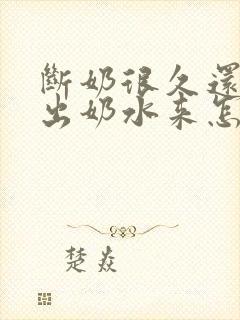 斷奶很久還
出奶水来怎
楚焱